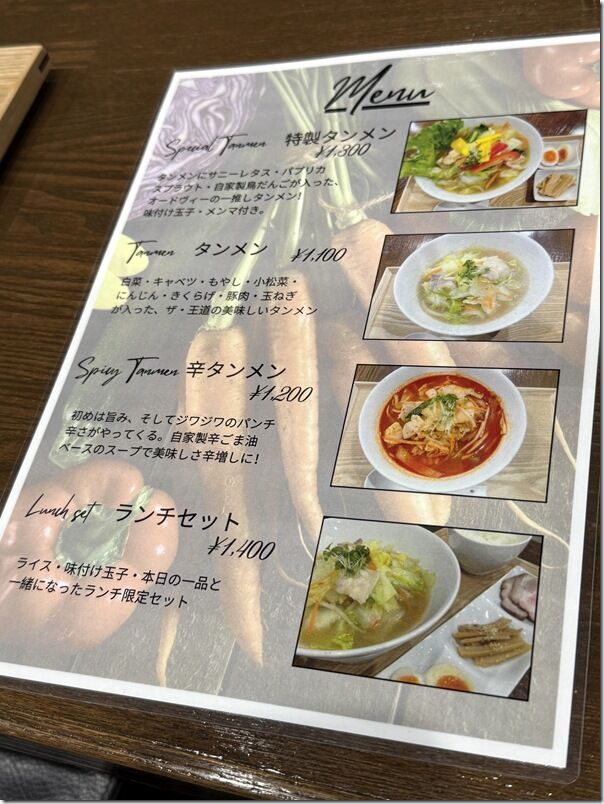 Menu
Special Tanmen 特製タンメン
¥1,300
タンメンにサニーレタス・パプリカ
スプラウト・自家製鳥だんごが入った、
オードヴィーの一推しタンメン!
味付け玉子・メンマ付き。
Tanmen タンメン ¥1,100
白菜・キャベツ・もやし・小松菜・
にんじん・きくらげ・豚肉・玉ねぎ
が入った、ザ・王道の美味しいタンメン
Spicy Tanmen 辛タンメン
¥1,200
初めは旨み、そしてジワジワのパンチ
辛さがやってくる。自家製辛ごま油
ベースのスープで美味しさ辛増しに!
Lunch set ランチセット
¥1,400
ライス・味付け玉子・本日の一品と
一緒になったランチ限定セット